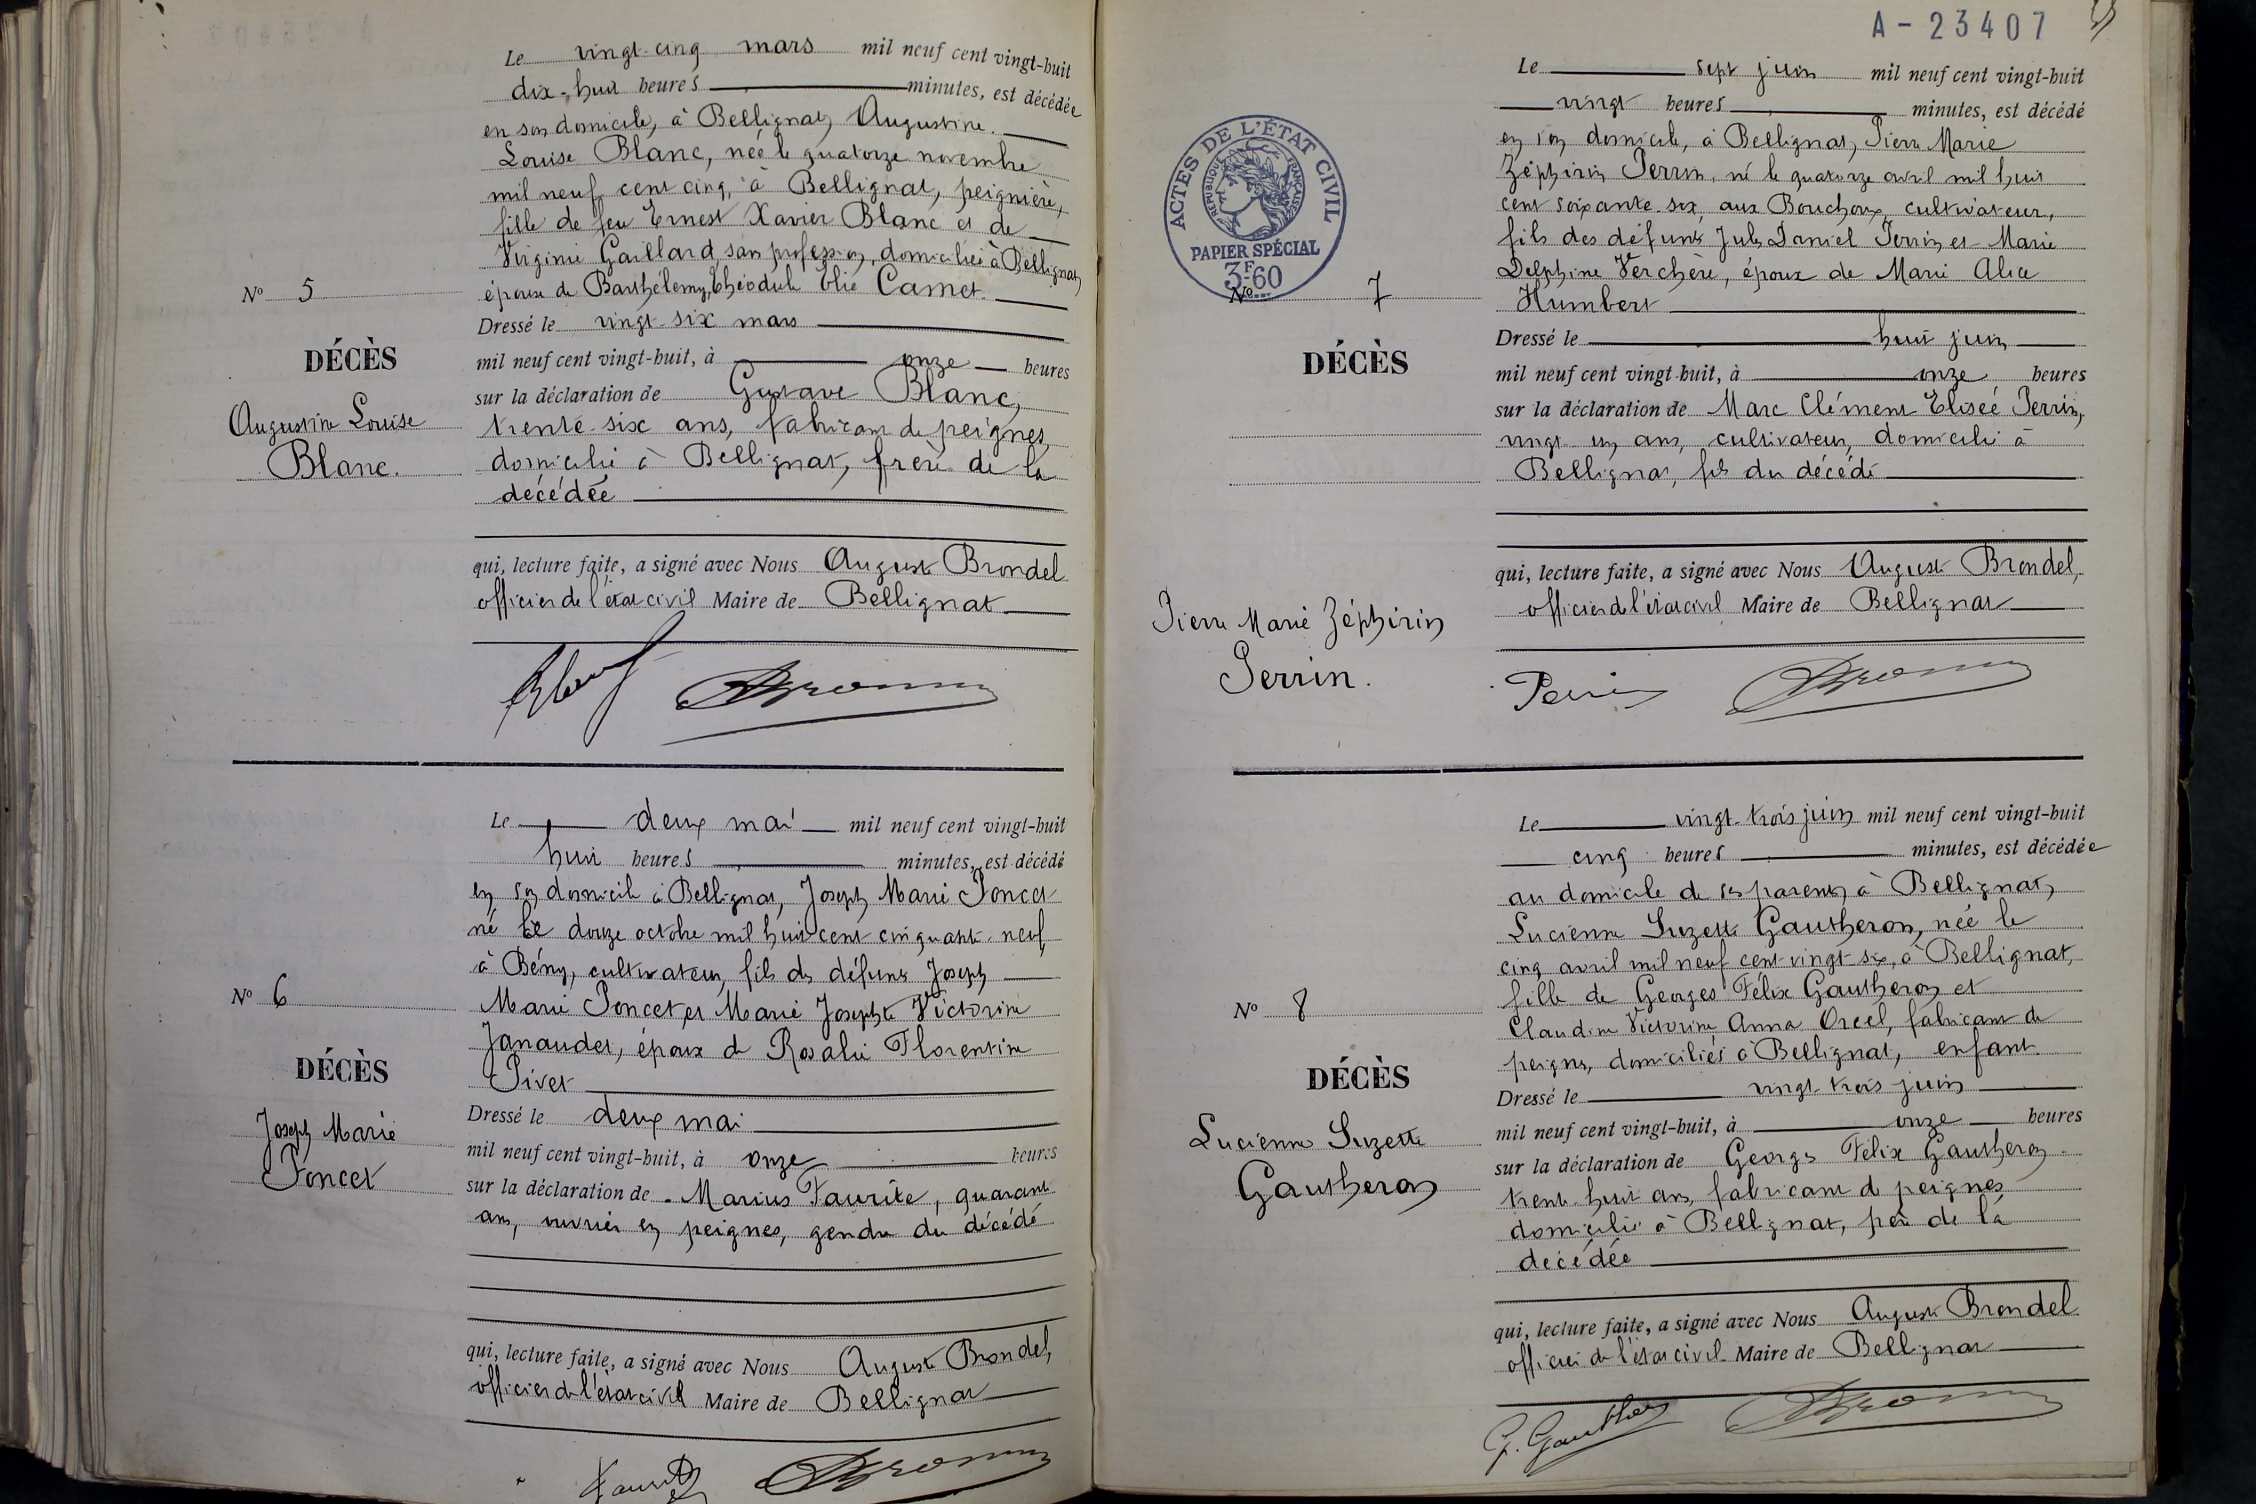 Le vingt-cinq mars mil neuf cent vingt-huit
dix-huit heures minutes, est décédée
en son domicile, à Bellignat, Augustine
Louise Blanc, née le quatorze novembre
mil neuf cent cinq, à Bellignat, peignière,
fille de feu Ernest Xavier Blanc et de
Virginie Gaillard, sans profession, domiciliée à Bellignat,
épouse de Barthélemy Théodule Elie Carnet.
Nº 5
Dressé le vingt-six mars
DÉCÈS
mil neuf cent vingt-huit, à onze heures
sur la déclaration de Gustave Blanc,
Augustine Louise
Blanc.
trente-six ans, fabricant de peignes,
domicilié à Bellignat, frère de la
décédée
qui, lecture faite, a signé avec Nous Auguste Brondel
officier de l'état civil Maire de Bellignat
Le deux mai mil neuf cent vingt-huit
huit heures minutes, est décédé
en son domicile à Bellignat, Joseph Marie Poncet
né le douze octobre mil huit cent cinquante-neuf,
à Bény, cultivateur, fils des défunts Joseph
Nº 6
Marie Poncet et Marie Josephte Victorine
Janaudet, époux de Rosalie Florentine
Pivet
DÉCÈS
Dressé le deux mai
Joseph Marie
Poncet
mil neuf cent vingt-huit, à onze heures
sur la déclaration de Marius Faurite, quarante
ans, ouvrier en peignes, gendre du décédé
qui, lecture faite, a signé avec Nous Auguste Brondel,
officier de l'état civil Maire de Bellignat
A-23407
Le sept juin mil neuf cent vingt-huit
vingt heures minutes, est décédé
en son domicile, à Bellignat, Pierre Marie
Zéphirin Perrin, né le quatorze avril mil huit
cent soixante-six, aux Bouchoux, cultivateur,
fils des défunts Jules Daniel Perrin et Marie
Delphine Verchère, époux de Marie Alice
Humbert
ACTES DE L'ÉTAT CIVIL
RÉPUBLIQUE FRANÇAISE
PAPIER SPÉCIAL
3F60
Nº 7
DÉCÈS
Dressé le huit juin
mil neuf cent vingt-huit, à onze heures
sur la déclaration de Marc Clément Elisée Perrin,
vingt-un ans, cultivateur, domicilié à
Bellignat, fils du décédé
qui, lecture faite, a signé avec Nous Auguste Brondel,
officier de l'état civil Maire de Bellignat
Pierre Marie Zéphirin
Perrin.
Perrin
Le vingt-trois juin mil neuf cent vingt-huit
cinq heures minutes, est décédée
au domicile de ses parents, à Bellignat,
Lucienne Suzette Gautheron, née le
cinq avril mil neuf cent vingt-six, à Bellignat,
fille de Georges Félix Gautheron et
Claudine Victorine Anna Orcel, fabricant de
peignes, domiciliés à Bellignat, enfant.
Nº 8
DÉCÈS
Dressé le vingt-trois juin
mil neuf cent vingt-huit, à onze heures
Lucienne Suzette
Gautheron
sur la déclaration de Georges Félix Gautheron
trente-huit ans, fabricant de peignes
domicilié à Bellignat, père de la
décédée
qui, lecture faite, a signé avec Nous Auguste Brondel
officier de l'état civil Maire de Bellignat
G. Gautheron